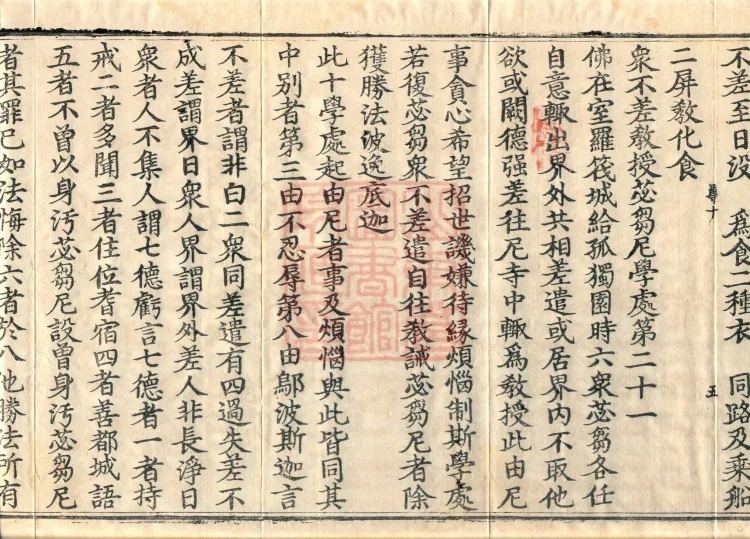 不差至日没 為食二種衣 同路及乗船
二屏教化食
尊十 五
衆不差教授苾芻尼學處第二十一
佛在室羅筏城給孤獨園時六衆苾芻各任
自意輙出界外共相差遣或居界内不取他
欲或闕德强差往尼寺中輙為教授此由尼
事貪心希望招世譏嫌待緣煩惱制斯學處
若復苾芻衆不差遣自往教誡苾芻尼者除
獲勝法波逸底迦
此十學處起由尼者事及煩惱與此皆同其
中别者第三由不忍辱第八由鄔波斯迦言
不差者謂非白二衆同差遣有四過失差不
成差謂界日衆人界謂界外差人非長淨日
衆者人不集人謂七德虧言七德者一者持
戒二者多聞三者住位耆宿四者善都城語
五者不曾以身污苾芻尼設曾身污苾芻尼
者其罪已如法悔除六者於八他勝法所有